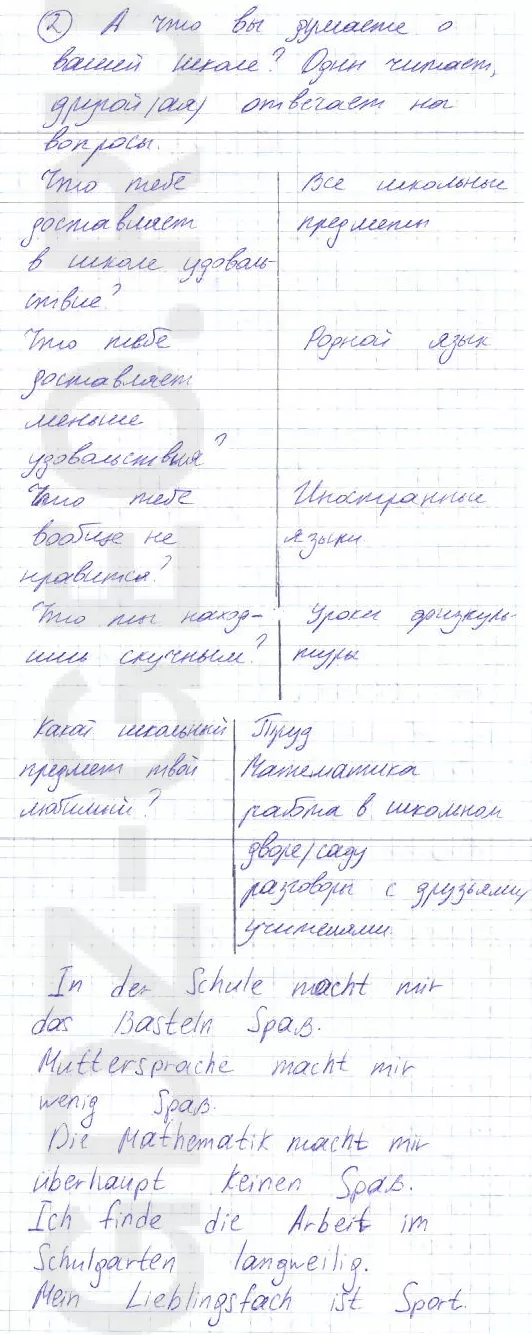 ② А что вы думаете о
вашей школе? Один читает,
другой/ая) отвечает на
вопросы.
Что тебе
доставляет
в школе удоволь-
ствие?
Все школьные
предметы
Что тебе
доставляет
меньше
удовольствия?
Родной язык
Что тебе
вообще не
нравится?
Иностранные
языки
Что ты наход-
ишь скучным?
Уроки физкуль-
туры
Какой школьный
предмет твой
любимый?
Труд
Математика
работа в школьном
дворе/саду
разговоры с друзьями,
учителями.
In der Schule macht mir
das Basteln Spaß.
Muttersprache macht mir
wenig Spaß.
Die Mathematik macht mir
überhaupt keinen Spaß.
Ich finde die Arbeit im
Schulgarten langweilig.
Mein Lieblingsfach ist Sport.
GDZ-GEO.RU